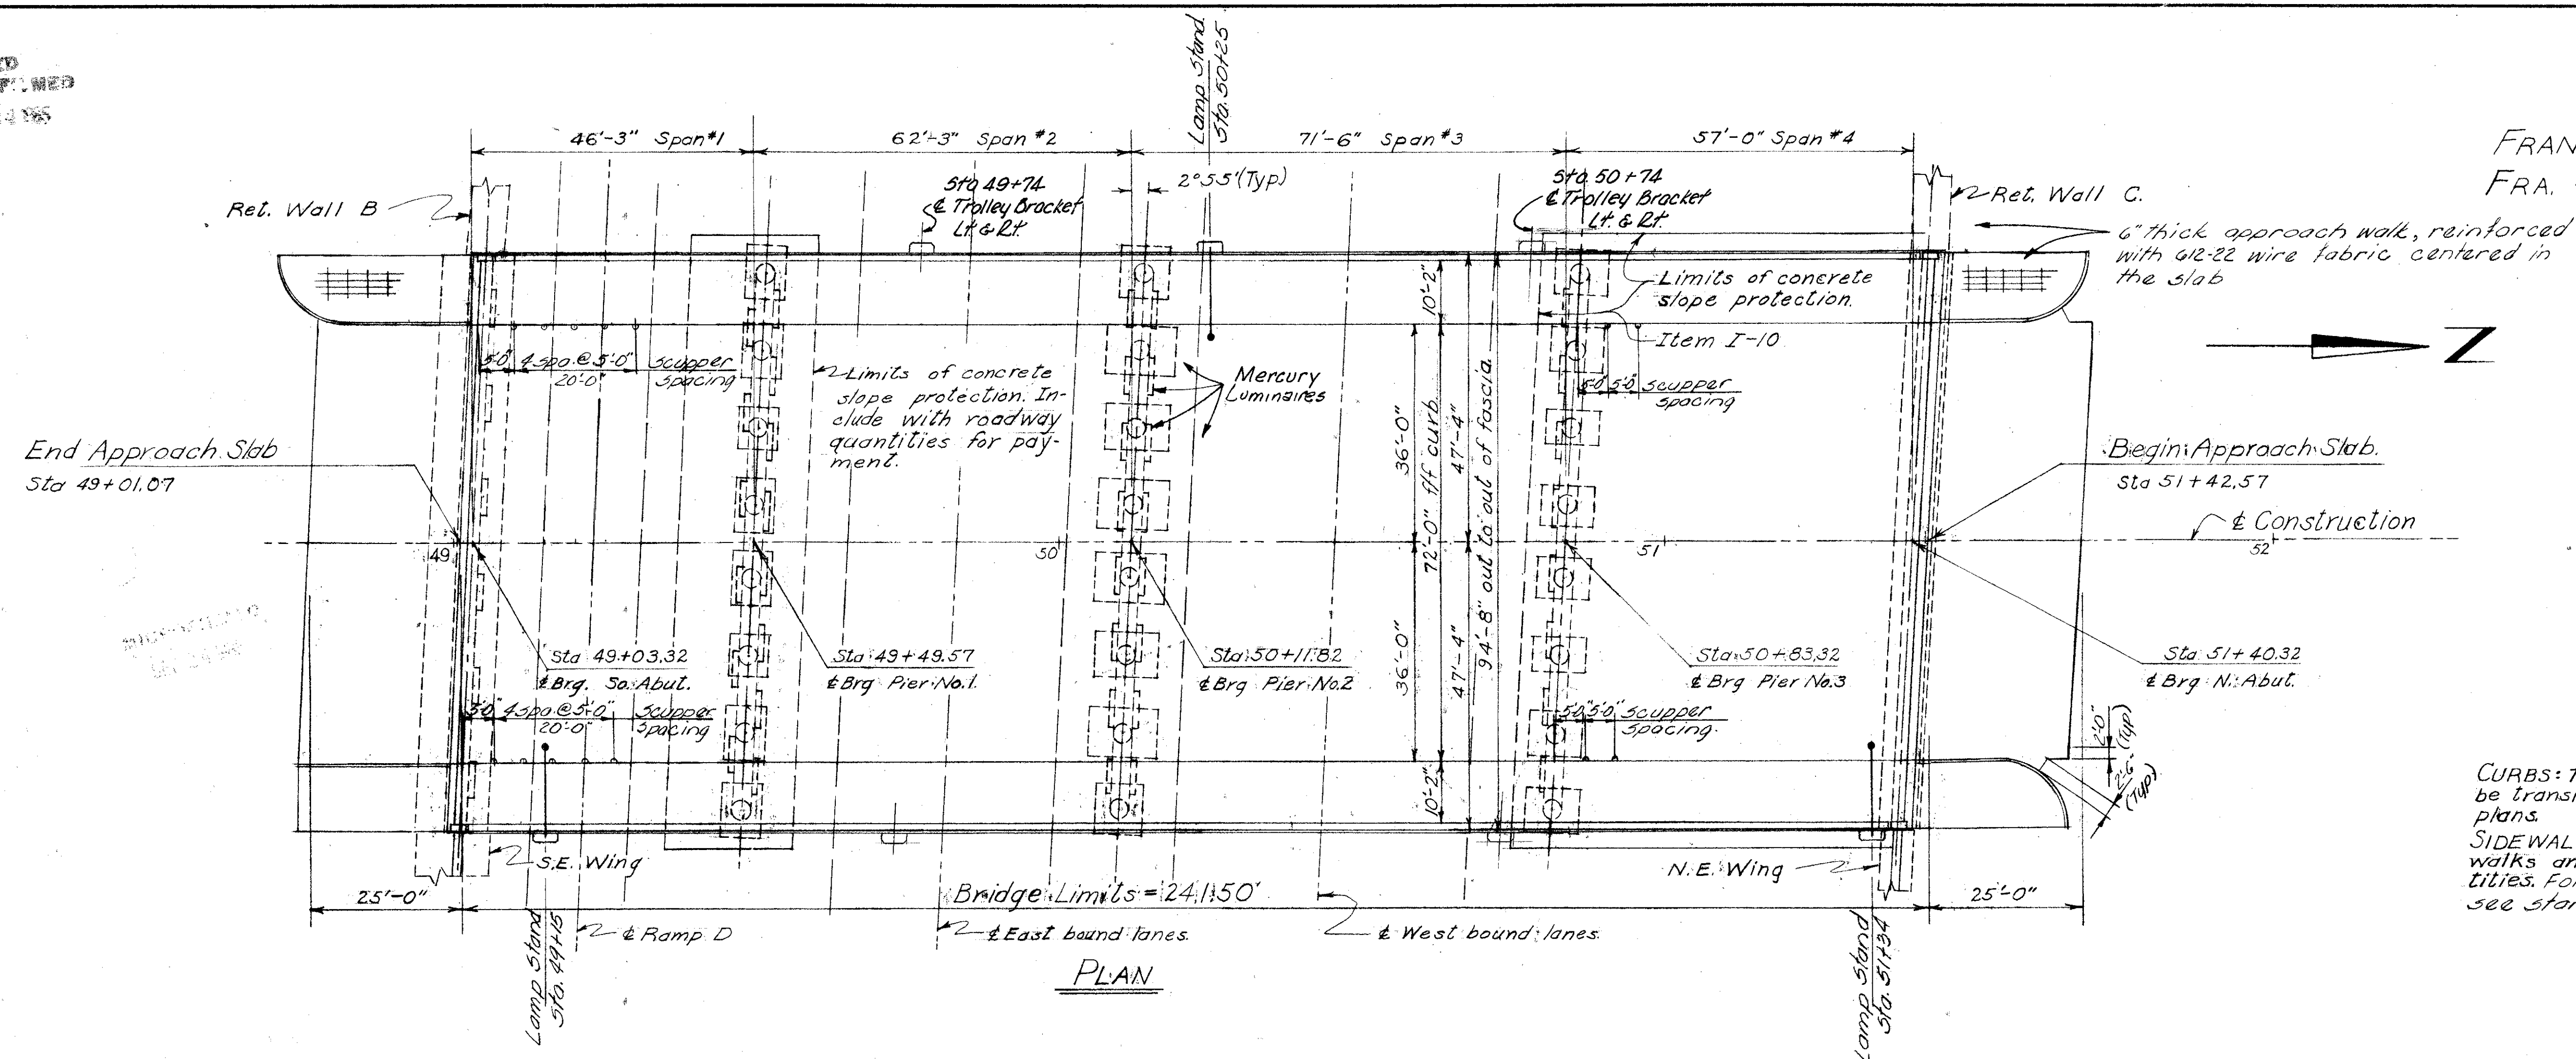 Lamp Stand
Sta. 50+25
46'-3" Span #1
62'-3" Span #2
71'-6" Span #3
57'-0" Span #4
FRAN
FRA.
Ret. Wall B
Sta 49+74
℄ Trolley Bracket
Lt. & Rt.
2°55' (Typ)
Sta. 50+74
℄ Trolley Bracket
Lt. & Rt.
Ret. Wall C.
6" thick approach walk, reinforced
with 612-22 wire fabric centered in
the slab
Limits of concrete
slope protection.
Item I-10
10'-2"
5'-0" 4 spa. @ 5'-0" Scupper
20'-0" Spacing
Limits of concrete
slope protection. In-
clude with roadway
quantities for pay-
ment.
Mercury
Luminaires
5'-0" 5'-0" Scupper
Spacing
Z
36'-0"
72'-0" f/f curb.
47'-4"
94'-8" out to out of fascia.
End Approach Slab
Sta 49+01.07
Begin Approach Slab.
Sta 51+42.57
℄ Construction
49
50
51
52
Sta 49+03.32
℄ Brg. So. Abut.
Sta 49+49.57
℄ Brg Pier No.1.
Sta 50+11.82
℄ Brg Pier No.2
Sta 50+83.32
℄ Brg Pier No.3
Sta 51+40.32
℄ Brg N. Abut.
36'-0"
47'-4"
5'-0" 4 spa. @ 5'-0" Scupper
20'-0" Spacing
5'-0" 5'-0" Scupper
Spacing.
10'-2"
2'-0"
(Typ)
2'-6"
(Typ)
CURBS: T
be transi
plans.
SIDEWAL
walks an
tities. For
see star
S.E. Wing
N.E. Wing
25'-0"
Bridge Limits = 241.50'
25'-0"
℄ Ramp D
℄ East bound lanes.
℄ West bound lanes.
Lamp Stand
Sta. 49+15
Lamp Stand
Sta. 51+34
PLAN